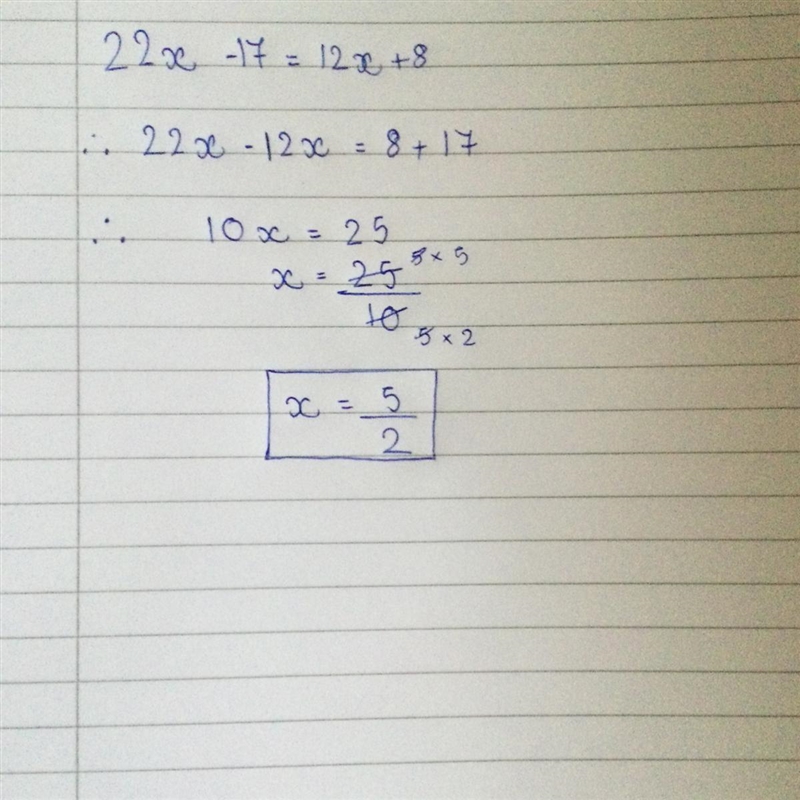 22x - 17 = 12x + 8
∴ 22x - 12x = 8 + 17
∴ 10x = 25
x = 25/10 5 × 5 5 × 2
x = 5/2